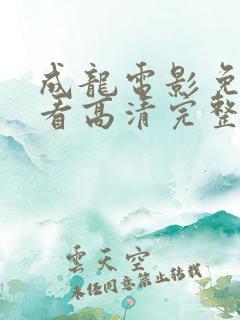 成龍電影免
看高清完整
雲天空
未经同意禁止转载